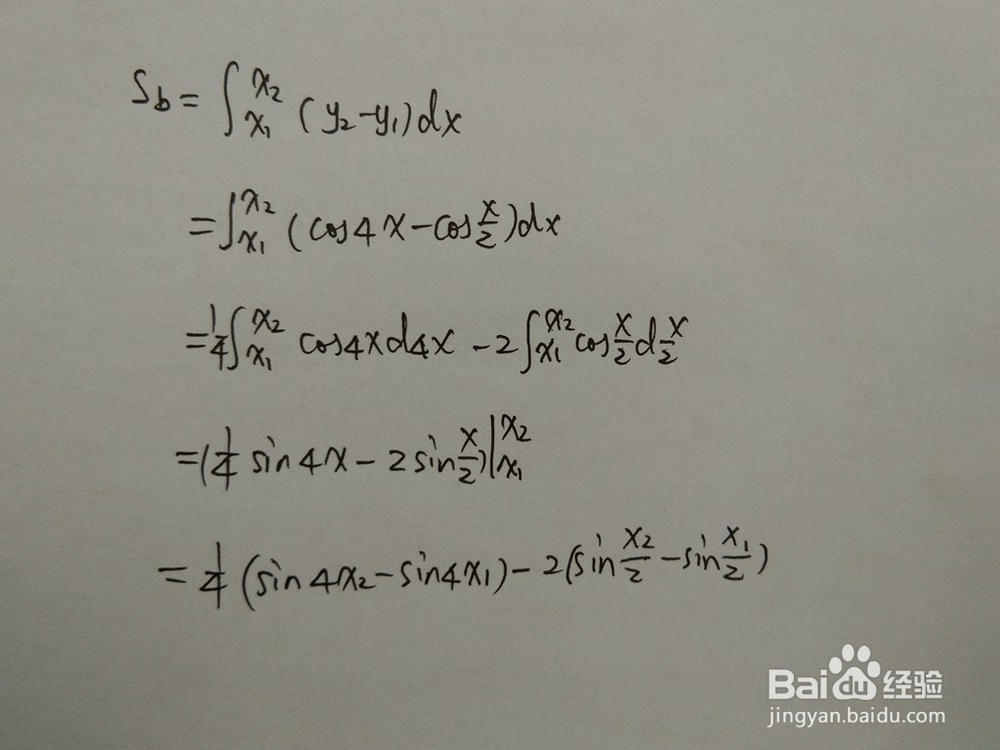 S_b = ∫_{x₁}^{x₂} (y₂-y₁)dx
= ∫_{x₁}^{x₂} (cos4x-cos\frac{x}{2})dx
= \frac{1}{4}∫_{x₁}^{x₂} cos4xd4x - 2∫_{x₁}^{x₂} cos\frac{x}{2}d\frac{x}{2}
= (\frac{1}{4} sin4x - 2sin\frac{x}{2})|_{x₁}^{x₂}
= \frac{1}{4} (sin4x₂-sin4x₁) - 2(sin\frac{x₂}{2}-sin\frac{x₁}{2})
Baidu经验
jingyan.baidu.com